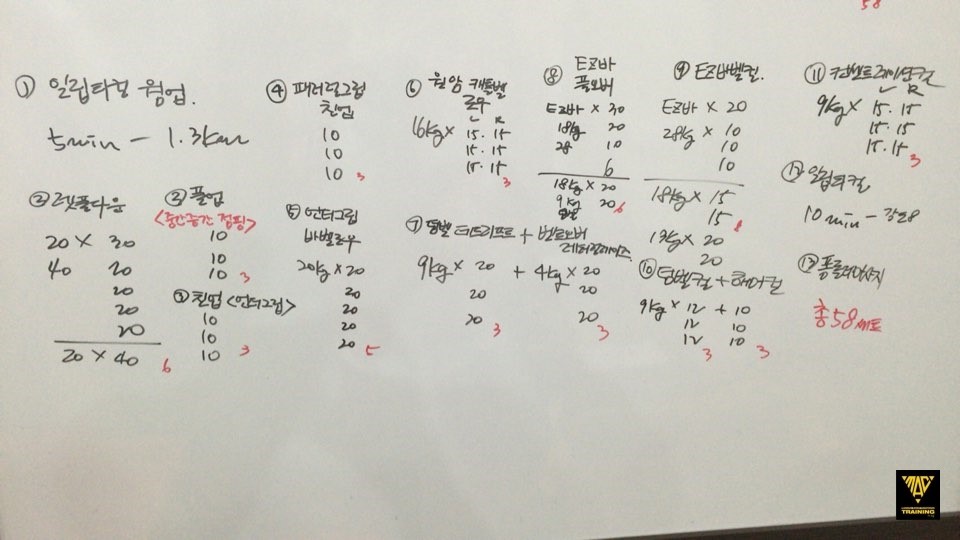 58
① 일립티컬 웜업.
5min - 1.3km
② 렛풀다운
20 × 30
40 20
20
20
20
20 × 40 6
② 풀업
<중간중간 점핑>
10
10
10 3
③ 친업 <언더그립>
10
10
10 3
④ 패러럴그립
친업
10
10
10 3
⑤ 언더그립
바벨로우
20kg × 20
20
20
20
20 5
⑥ 원암 캐틀벨
로우
L R
16kg × 15. 15
15. 15
15. 15
3
⑦ 덤벨 데드리프트 + 벤트오버
레터럴레이즈.
9kg × 20 + 4kg × 20
20 20
20 3 20 3
⑧ EZ바
풀오버
EZ바 × 30
18kg 20
28 10
6
18kg × 20
9kg 20 6
덤벨
⑨ EZ바벨컬.
EZ바 × 20
28kg × 10
10
10
18kg × 15
15 8
13kg × 20
20
⑩ 덤벨컬 + 해머컬
9kg × 12 + 10
12 10
12 3 10 3
⑪ 컨센트레이션컬
L R
9kg × 15. 15
15. 15
15. 15
3
⑫ 일립티컬
10min - 강도8
⑬ 폼롤러마사지
총 58세트
MAC
TRAINING